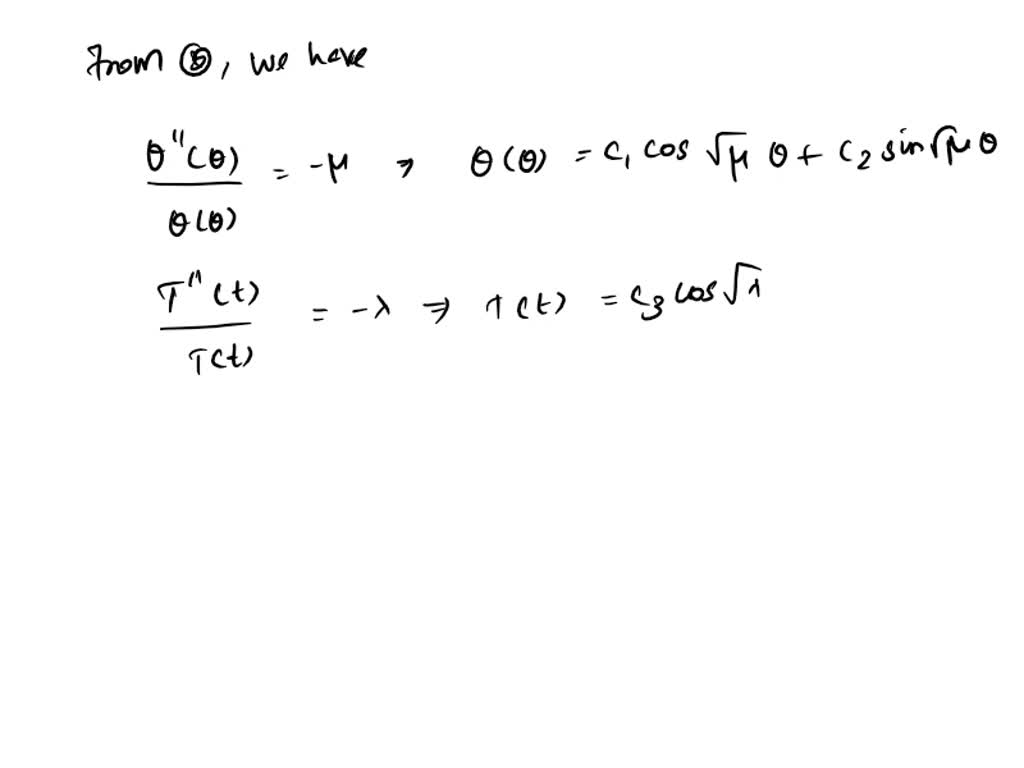 From ⑤, we have
θ''(θ)/θ(θ) = -μ ⇒ θ(θ) = c₁ cos √μ θ + c₂ sin √μ θ
T''(t)/T(t) = -λ ⇒ T(t) = c₃ cos √λ